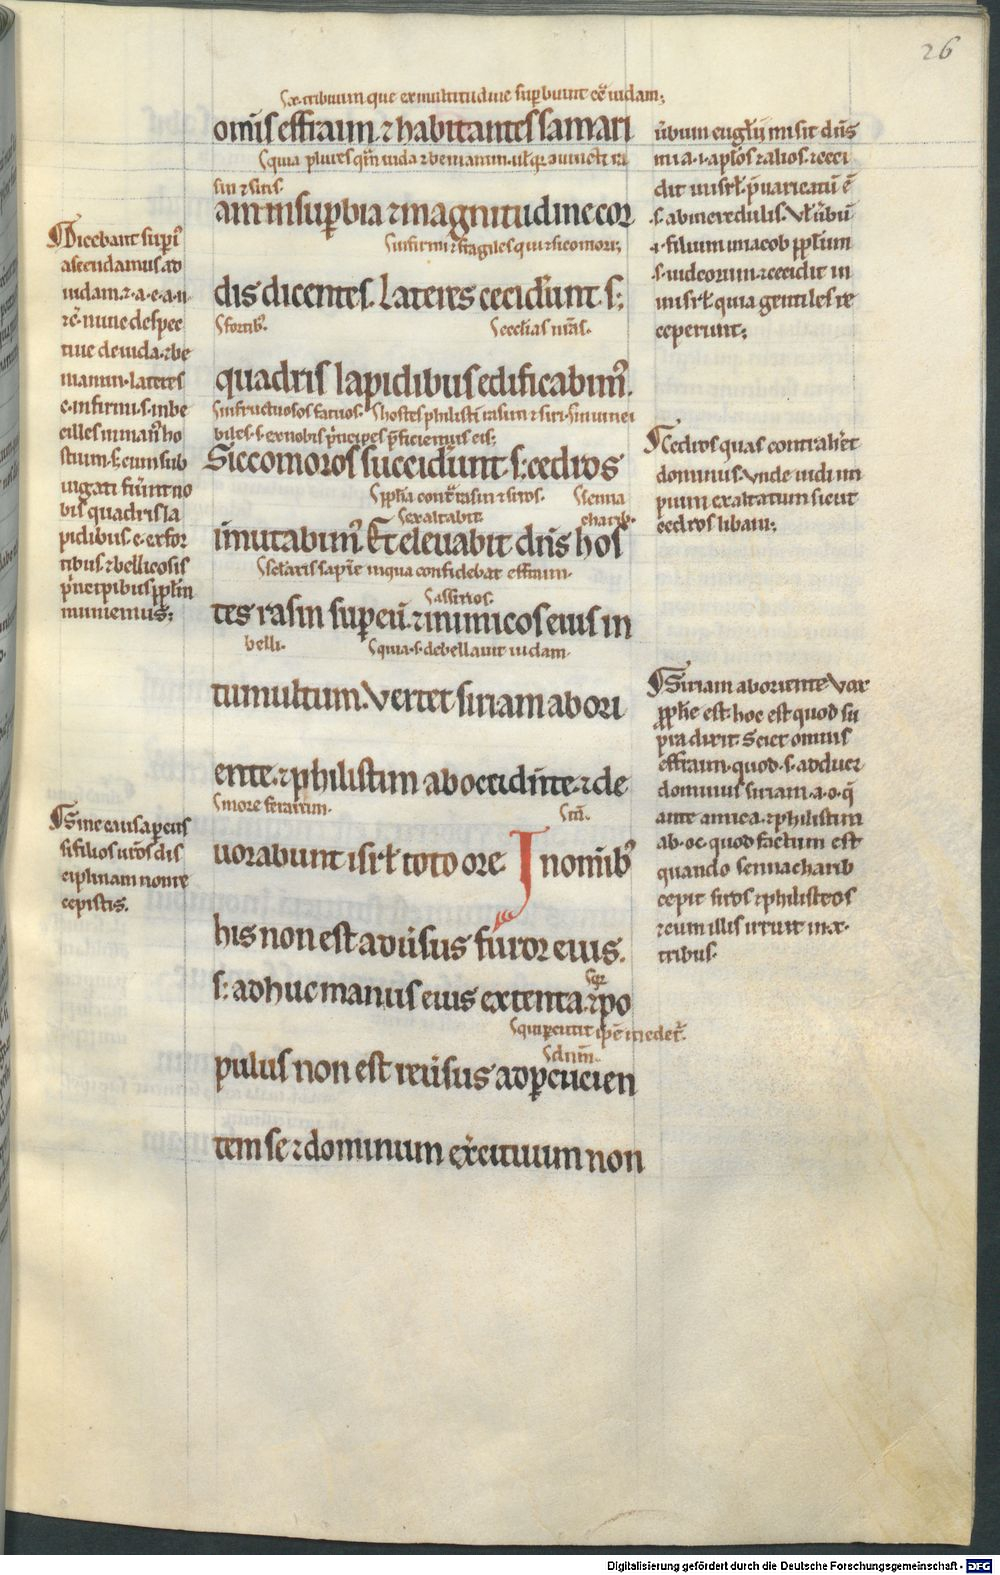 26
.s. x. tribuum que ex multitudine sup̄biunt cē iudam;
om̄is effraim ⁊ habitantes samari
.s. quia plures q̄m iuda ⁊ beniamin
sin ⁊ siris.
am in sup̄bia ⁊ magnitudine cor
.s. infirmi ⁊ fragiles qui ⁊ sicomori;
dis dicentes. Lateres cecider̄unt .s:
.s. fortib᷒. .s. eccl̄ias nr̄as.
quadris lapidibus edificabim᷒.
.s. infructuosos fatuos. .s. hostes philistī rasin ⁊ siri
biles .s. ex nobis p̄ncipes p̄ficiemus eis;
Siccomoros succider̄unt .s: cedros
.s. ppl̄ia contr̄ rasin ⁊ siros. .s. senna
.s. exaltabit charib.
īmutabim᷒. Et eleuabit dn̄s hos
.s. in qua confidebat effraim.
.s. assirios.
tes rasin sup eū. ⁊ inimicos eius in
belli. .s. quia .s. debellauit iudam.
tumultum. Vertet siriam ab ori
ente. ⁊ philistim ab occidn̄te. ⁊ de
.s. more ferarum.
uorabunt isrł toto ore. In om̄ib᷒
his non est aduersus furor eius.
.s: adhuc manus eius extenta. ⁊ po
pulus non est reūsus ad pcucien
tem se ⁊ dominum ex̄cituum non
Dicebant sup̄i᷒
ascendamus ad
iudam. ⁊. a. e. a. n.
rē. nunc despec
tiue de iuda. ⁊ be
niamin. lateres
.e. infirmis. inbe
cilles in man᷒ ho
stium .s. cum sub
iugati fūint no
bis quadris la
pidibus. e. ex for
tibus. ⁊ bellicosis
p̄ncipibus ppl̄m
muniemus;
Sine causa pcus
si filios ur̄os dis
ciplinam non re
cepistis.
ūbum eugl̄ij misit dn̄s
mi a .i. apl̄os ⁊ alios. ⁊ ceci
dit in isrł. p̄uaricatū ē
.s. ab incredulis. Vł ūbū
.i. filium in iacob ppl̄um
.s. iudeorum. ⁊ cecidit in
in isrł. quia gentiles re
ceperunt;
Cedros quas contrahet
dominus. Vnde uidi im
pium exaltatum sicut
cedros libani;
Siriam ab oriente Vox
pph̄e est. hoc est quod su
pra dixit. Sciet omnis
effraim. quod .s. adducet
dominus siriam. a. o. q̄
ante amica. ⁊ philistim
ab. oc. quod factum est
quando sennacharib
cepit siros ⁊ philisteos
⁊ cum illis irruit in .x.
tribus.
Digitalisierung gefördert durch die Deutsche Forschungsgemeinschaft - DFG